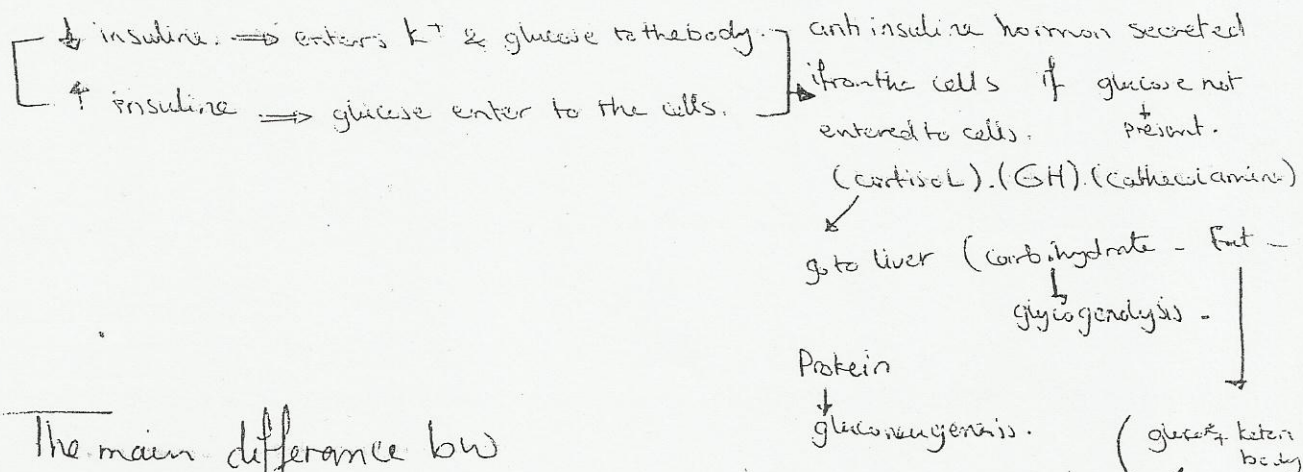 ↓ insuline. ⇒ enters K⁺ & glucose to the body.
↑ insuline ⇒ glucose enter to the cells.
anti insuline hormon secreted
from the cells if glucose not
entered to cells. present.
(cortisol).(GH).
go to liver (carbohydrate - Fat -
glycogenolysis -
Protein
↓
gluconeugenesis.
( glucose + keton
body
The main differance bw